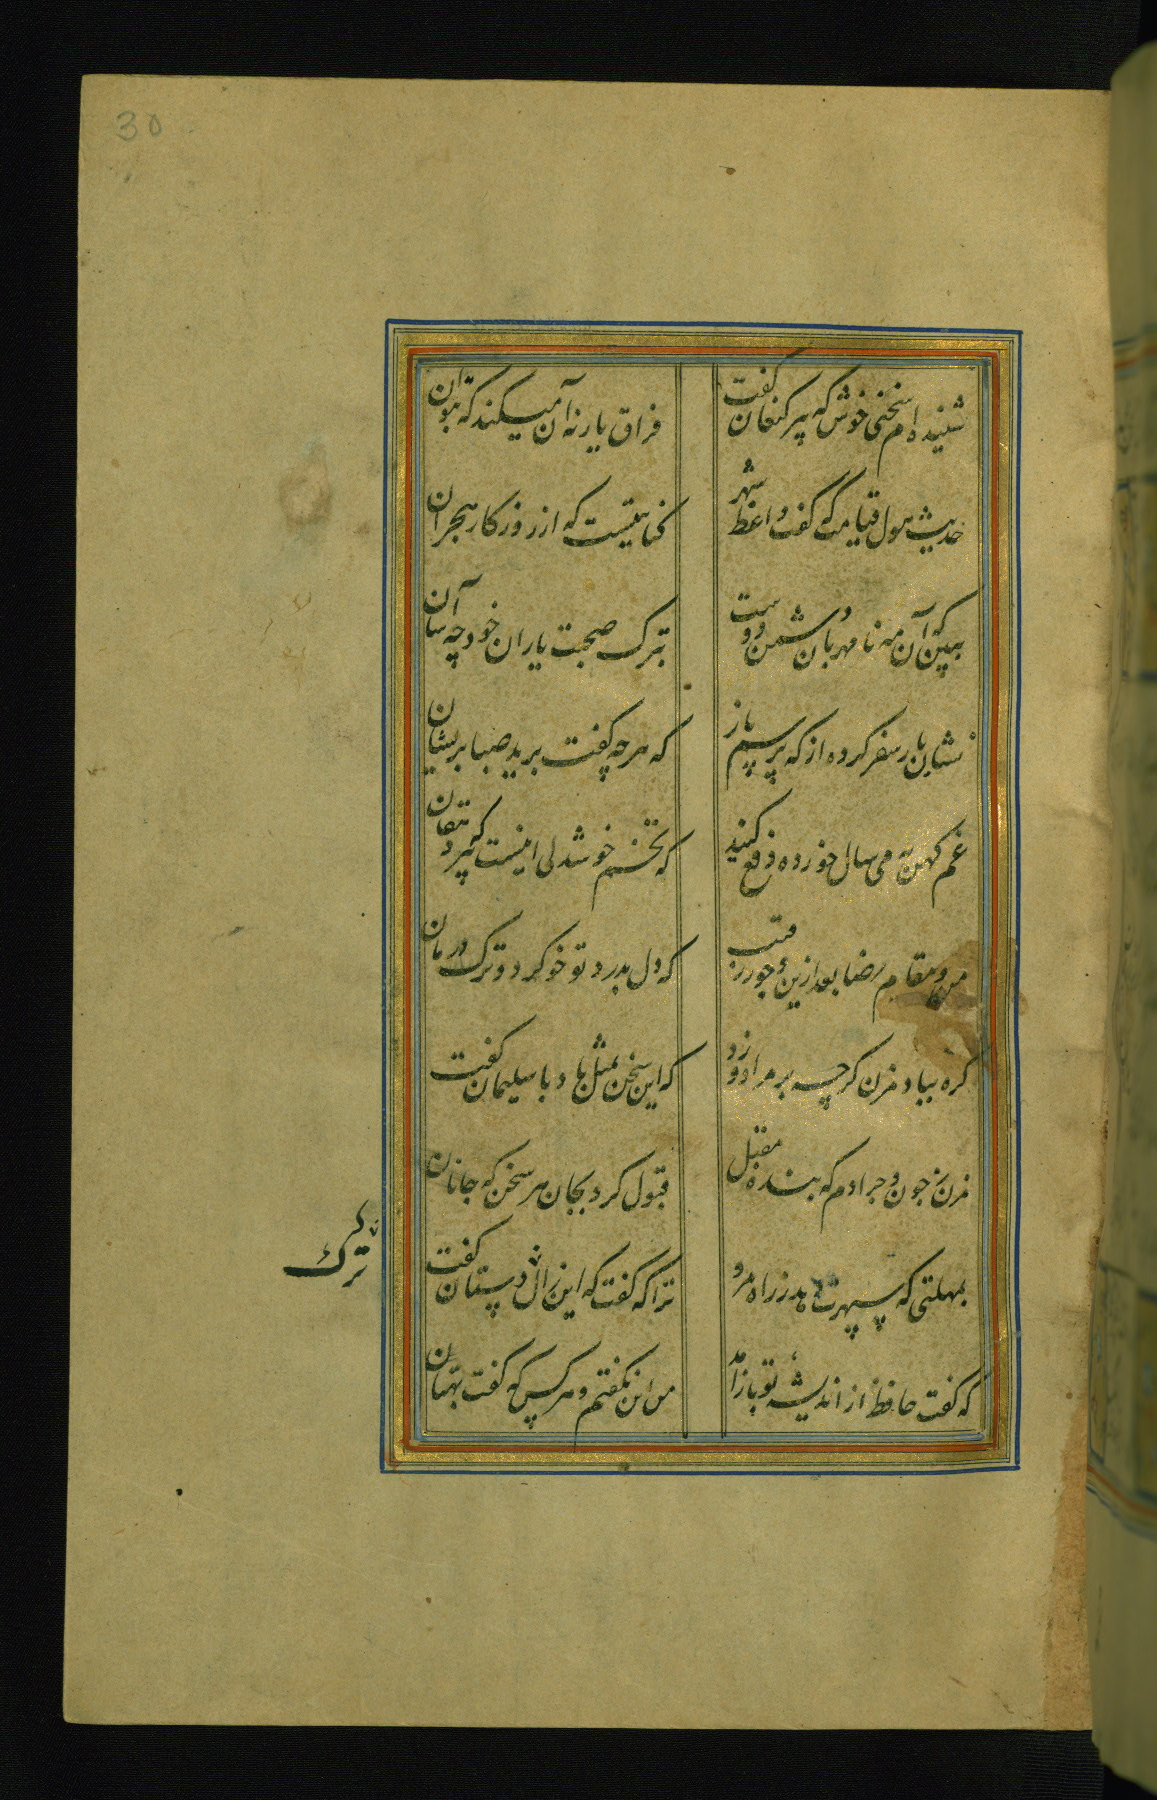 30
شنیده‌ام سخنی خوش که پیر کنعان گفت
فراق یار نه آن میکند که بتوان
حدیث هول قیامت که گفت واعظ شهر
کنایتیست که از روزکار هجران
ببین که آن مه نامهربان دشمن و دوست
بترک صحبت یاران خود چه آسان
نشان یار سفر کرده از که پرسم باز
که هر چه گفت برید صبا پریشان
غم کهن به می سال خورده دفع کنید
که تخم خوشدلی اینست پیر دهقان
من و مقام رضا بعد ازین و جور رقیب
که دل بدرد تو خو کرد و ترک درمان
کره بباد مزن کرچه بر مراد وزد
که این سخن بمثل باد با سلیمان گفت
مزن ز چون و چرا دم که بنده مقبل
قبول کرد بجان هر سخن که جانان
بمهلتی که سپهرت دهد ز راه مرو
ترا که گفت که این زال دستان گفت
که گفت حافظ از اندیشه تو باز آمد
من این نگفتم و هر کس که گفت بهتان